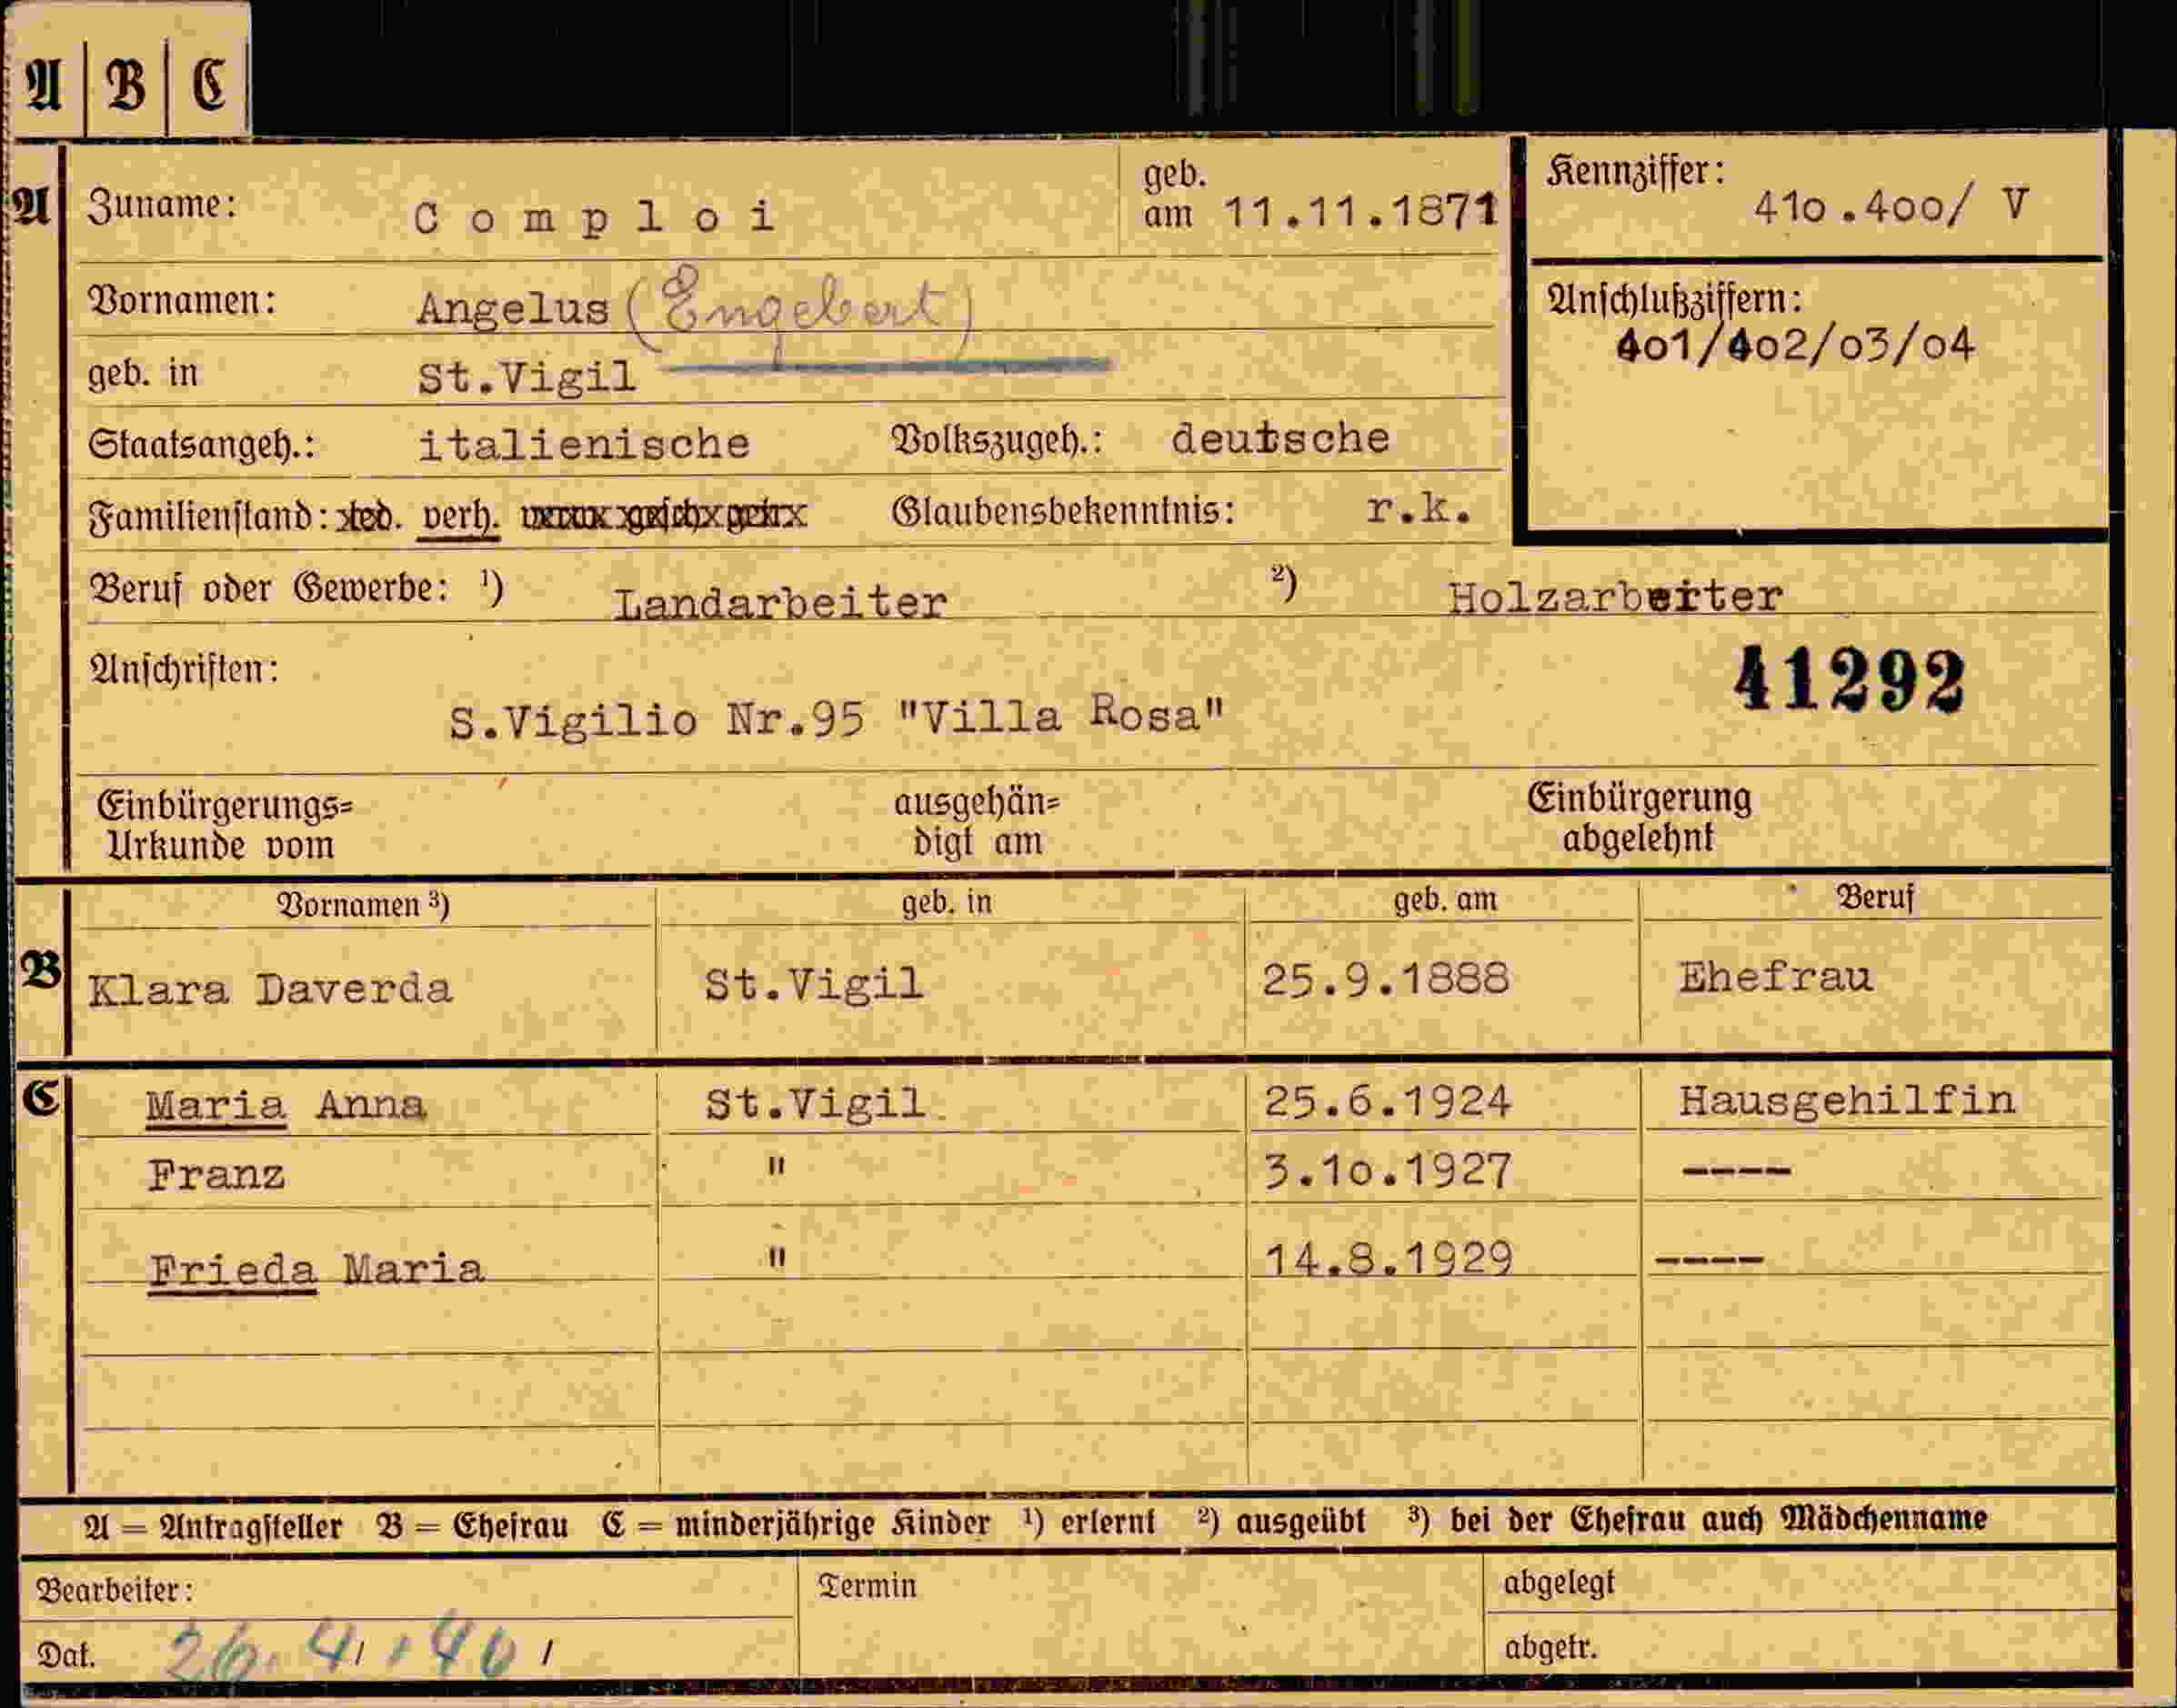 A B C
A Zuname: Comploi geb. am 11.11.1871 Kennziffer: 410.400/ V
Vornamen: Angelus (Engelbert) Anschlußziffern: 401/402/03/04
geb. in St.Vigil
Staatsangeh.: italienische Volkszugeh.: deutsche
Familienstand: led. verh. Glaubensbekenntnis: r.k.
Beruf oder Gewerbe: ¹) Landarbeiter ²) Holzarbeiter
Anschriften: 41292
S.Vigilio Nr.95 "Villa Rosa"
Einbürgerungs= ausgehän= Einbürgerung
Urkunde vom digt am abgelehnt
Vornamen ³) geb. in geb. am Beruf
B Klara Daverda St.Vigil 25.9.1888 Ehefrau
C Maria Anna St.Vigil 25.6.1924 Hausgehilfin
Franz " 3.10.1927 ----
Frieda Maria " 14.8.1929 ----
A = Antragsteller B = Ehefrau C = minderjährige Kinder ¹) erlernt ²) ausgeübt ³) bei der Ehefrau auch Mädchenname
Bearbeiter: Termin abgelegt
Dat. 26.4.40 abgetr.